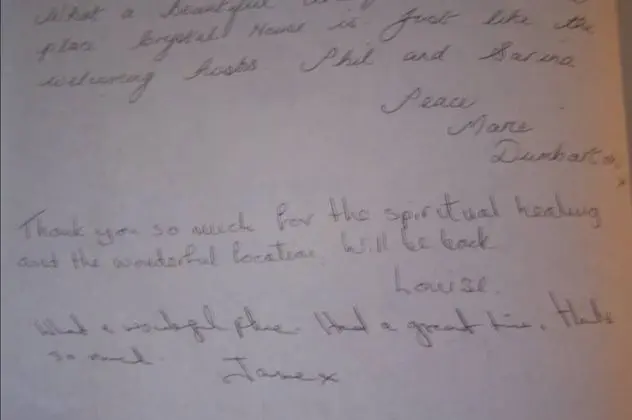 What a beautiful
Krystal House is. Just like the
welcoming hosts Phil and Sarina
Peace
Marie
Dumbarton
x
Thank you so much for the spiritual healing
and the wonderful location. Will be back
Louise.
What a wonderful place. Had a great time. Thanks
so much. Jane x